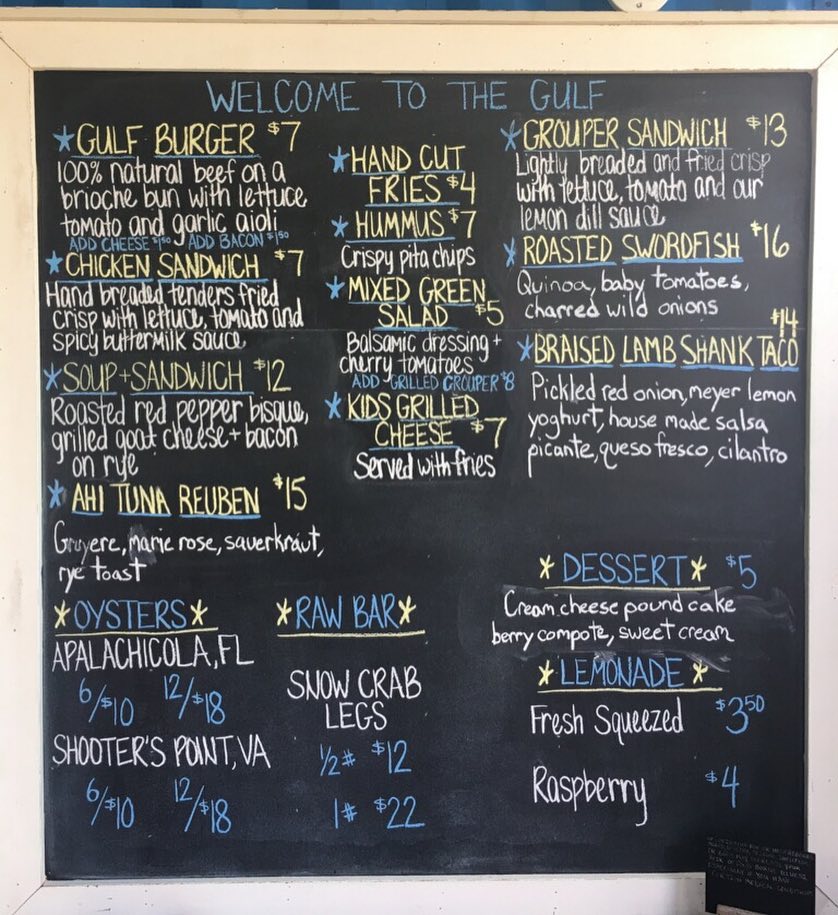 WELCOME TO THE GULF
GULF BURGER $7
100% natural beef on a
brioche bun with lettuce
tomato and garlic aioli
ADD CHEESE $1.50 ADD BACON $1.50
CHICKEN SANDWICH $7
Hand breaded tenders fried
crisp with lettuce, tomato and
spicy buttermilk sauce
SOUP + SANDWICH $12
Roasted red pepper bisque,
grilled goat cheese + bacon
on rye
AHI TUNA REUBEN $15
Gruyere, marie rose, sauerkraut,
rye toast
HAND CUT
FRIES $4
HUMMUS $7
Crispy pita chips
MIXED GREEN
SALAD $5
Balsamic dressing +
cherry tomatoes
ADD GRILLED GROUPER $8
KIDS GRILLED
CHEESE $7
Served with fries
GROUPER SANDWICH $13
Lightly breaded and fried crisp
with lettuce, tomato and our
lemon dill sauce
ROASTED SWORDFISH $16
Quinoa, baby tomatoes,
charred wild onions
$14
BRAISED LAMB SHANK TACO
Pickled red onion, meyer lemon
yoghurt, house made salsa
picante, queso fresco, cilantro
OYSTERS
APALACHICOLA, FL
6/$10 12/$18
SHOOTER'S POINT, VA
6/$10 12/$18
RAW BAR
SNOW CRAB
LEGS
1/2# $12
1# $22
DESSERT $5
Cream cheese pound cake
berry compote, sweet cream
LEMONADE
Fresh Squeezed $3.50
Raspberry $4